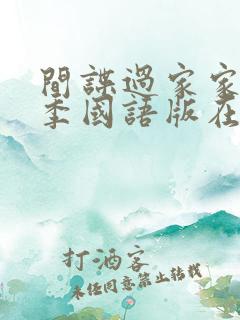 間諜過家家
季國語版在
打酒客
未經同意禁止轉載